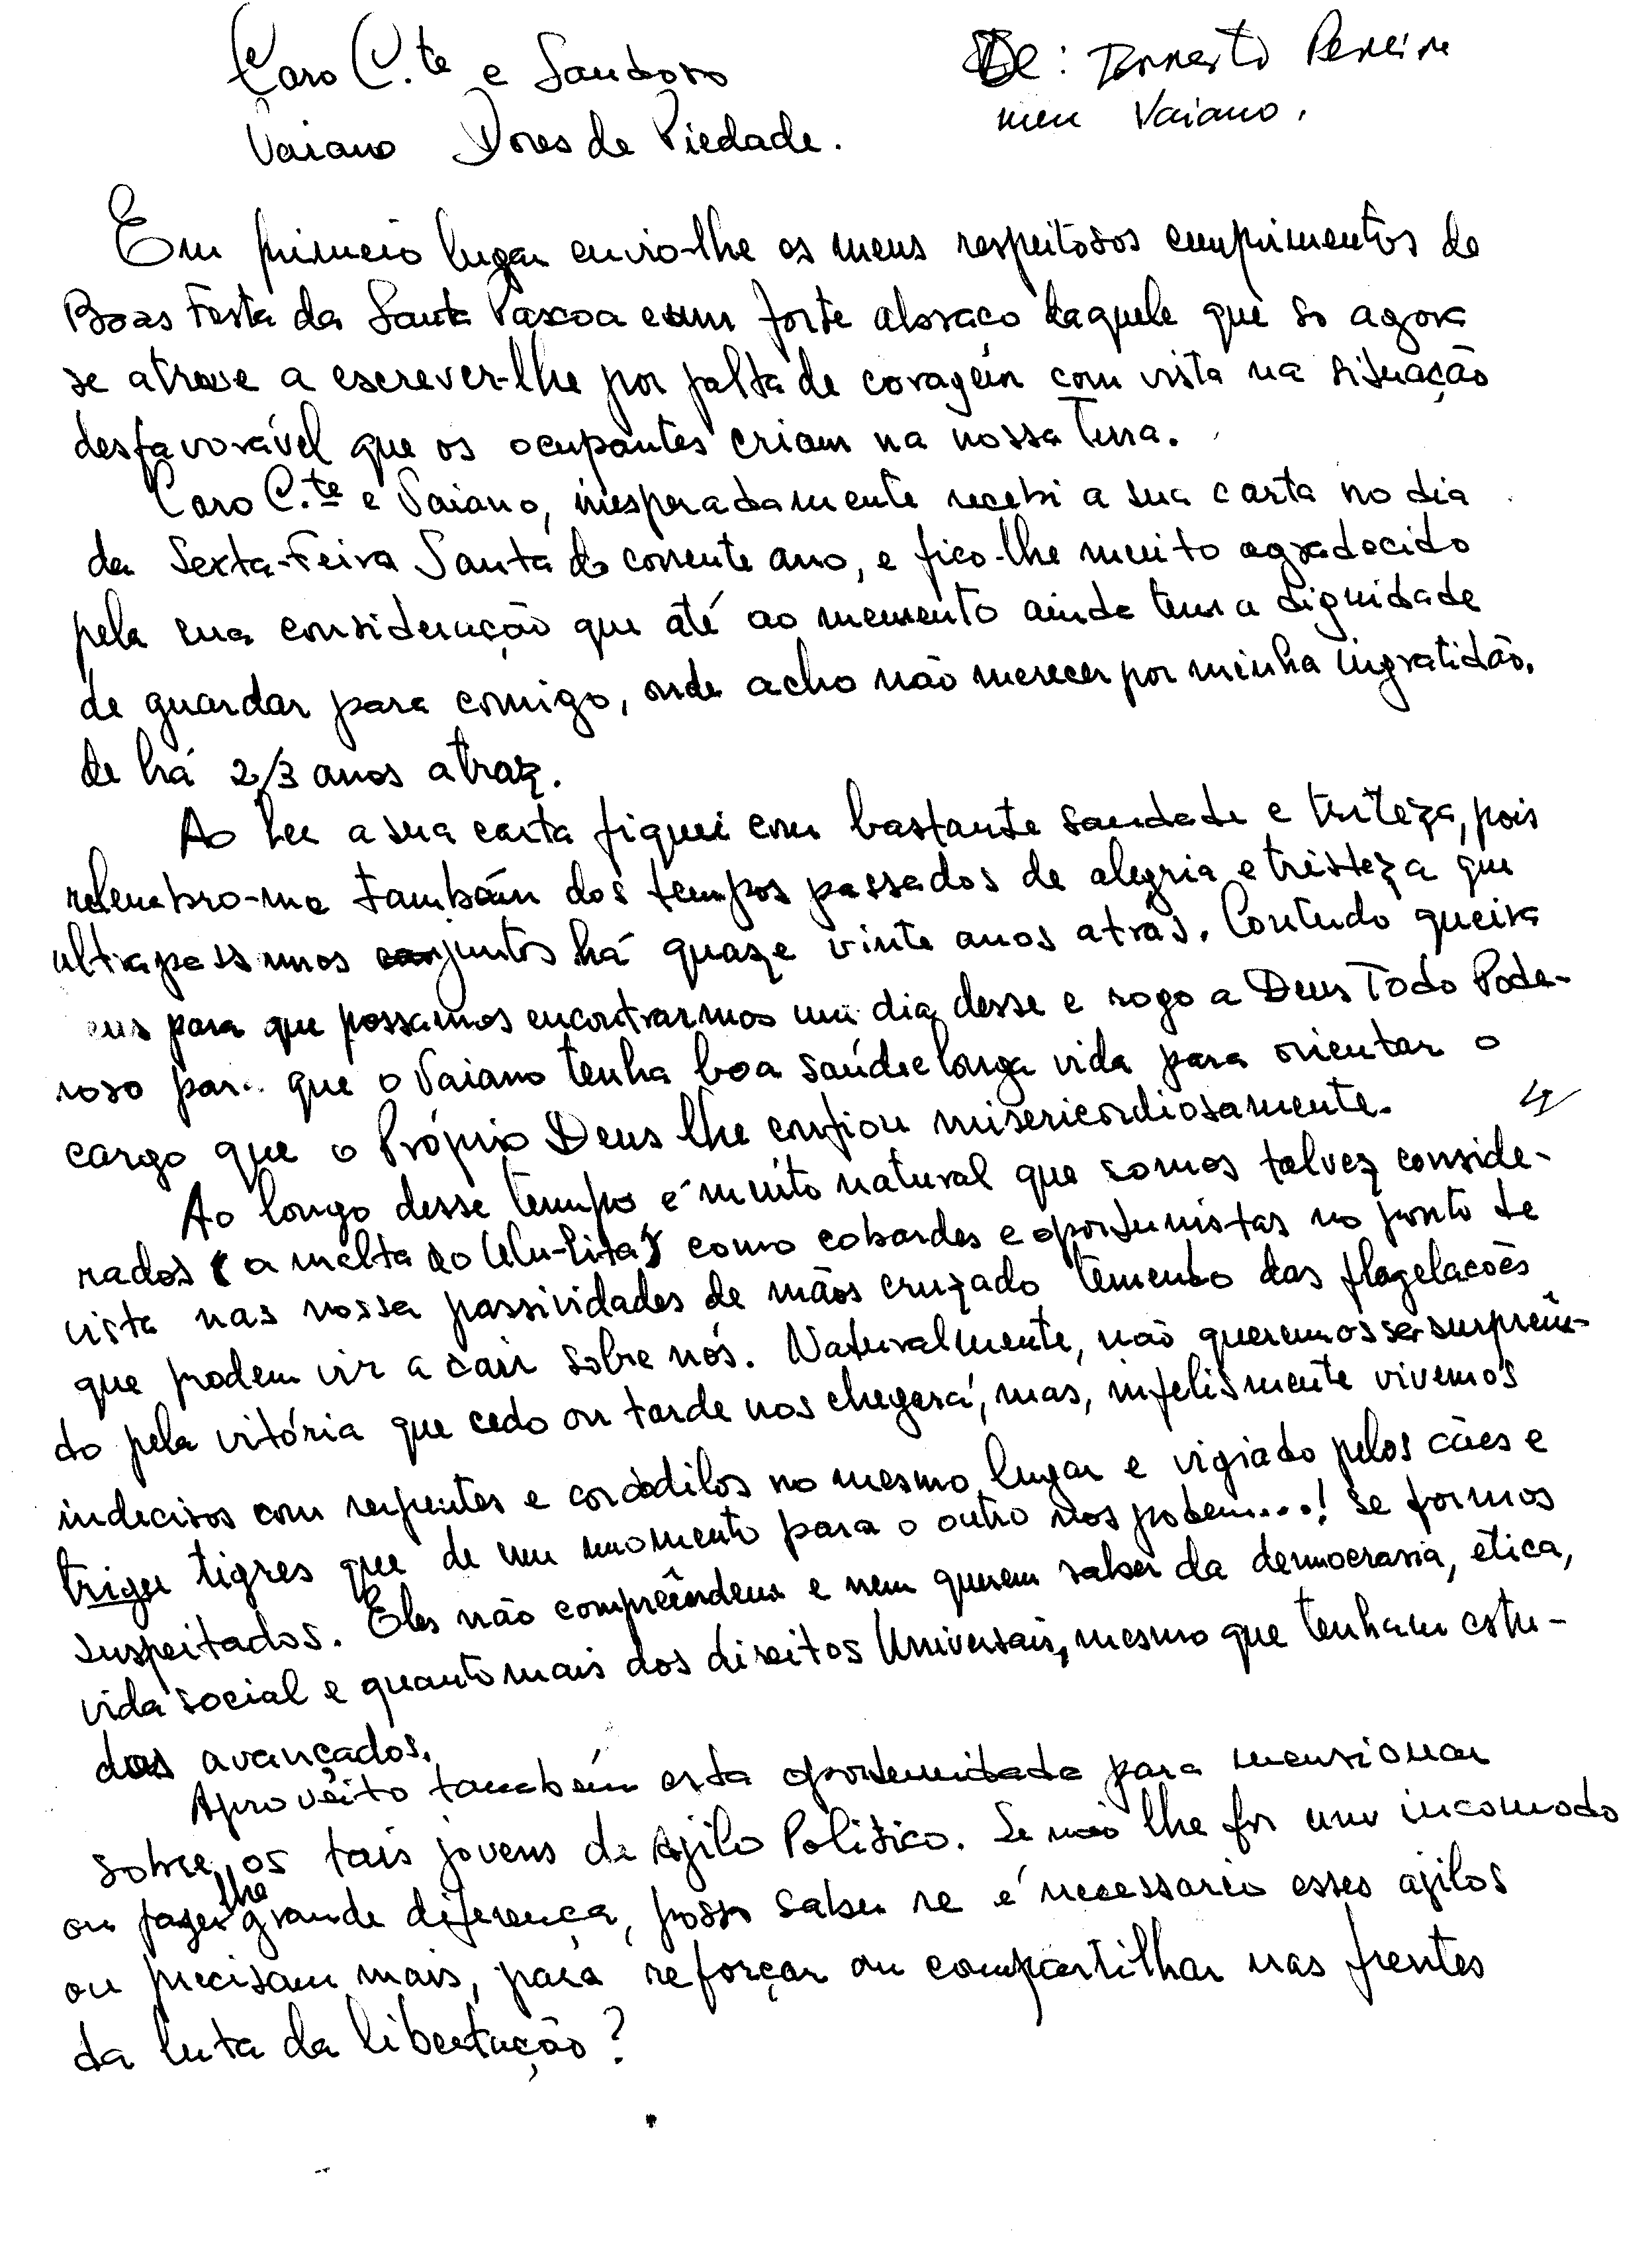 Caro C.te e Saudoso
Vaiano Dores de Piedade.
De: Ernesto Pereira
meu Vaiano.
Em primeiro lugar envio-lhe os meus respeitosos cumprimentos de
Boas Festa da Santa Pascoa e um forte abraço daquele que só agora
se atreve a escrever-lhe por falta de coragém com vista na situação
desfavorável que os ocupantes criam na nossa Terra.
Caro C.te e Vaiano, inesperadamente recebi a sua carta no dia
da Sexta-Feira Santa do corrente ano, e fico-lhe muito agradecido
pela sua consideração que até ao memento ainda tem a dignidade
de guardar para comigo, onde acho não merecer por minha ingratidão,
de há 2/3 anos atraz.
Ao ler a sua carta fiquei com bastante saudade e tristeza, pois
relembro-me também dos tempos passados de alegria e tristeza que
ultrapassamos juntos há quaze vinte anos atrás. Contudo queira
eus para que possamos encontrarmos um dia desse e rogo a Deus Todo Pode-
roso para que o Vaiano tenha boa saúde e longa vida para orientar o
cargo que o Próprio Deus lhe confiou misericordiosamente.
Ao longo desse tempo é muito natural que somos talvez conside-
rados (a malta do Ulu-Lita) como cobardes e oportunistas no ponto de
vista nas nossa passividades de mãos cruzado temendo das flagelacões
que podem vir a cair sobre nós. Naturalmente, não queremos ser surpreên-
do pela vitória que cedo ou tarde nos chegará, mas, infelismente vivemos
indecisos com serpentes e corcodilos no mesmo lugar e vigiado pelos cães e
tigres que de um momento para o outro nos podem...! se formos
suspeitados. Eles não compreêndem e nem querem saber da democrasia, ética,
vida social e quanto mais dos direitos Universais, mesmo que tenham estu-
dos avançados.
Aproveito também esta oportunidade para mensionar
sobre os tais jovens de Azilo Politico. Se não lhe for um incomodo
ou fazer lhe grande diferença, posso saber se é necessario esses azilos
ou precisam mais, para reforçar ou compartilhar nas frentes
da luta da libertação?